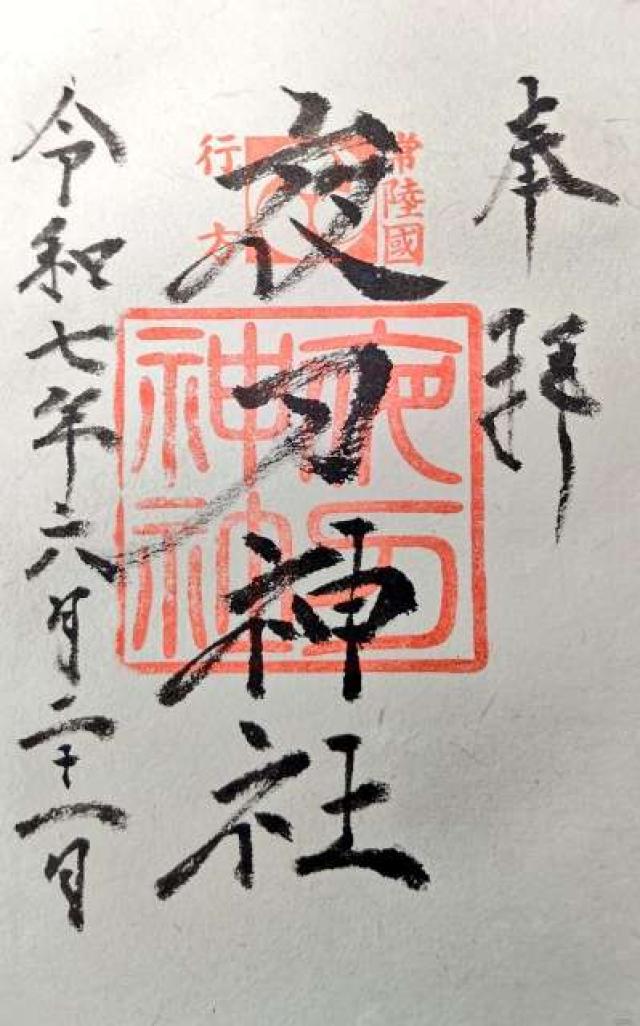 奉拝
常陸國
行方
夜刀神社
夜刀神社
令和七年六月二十一日